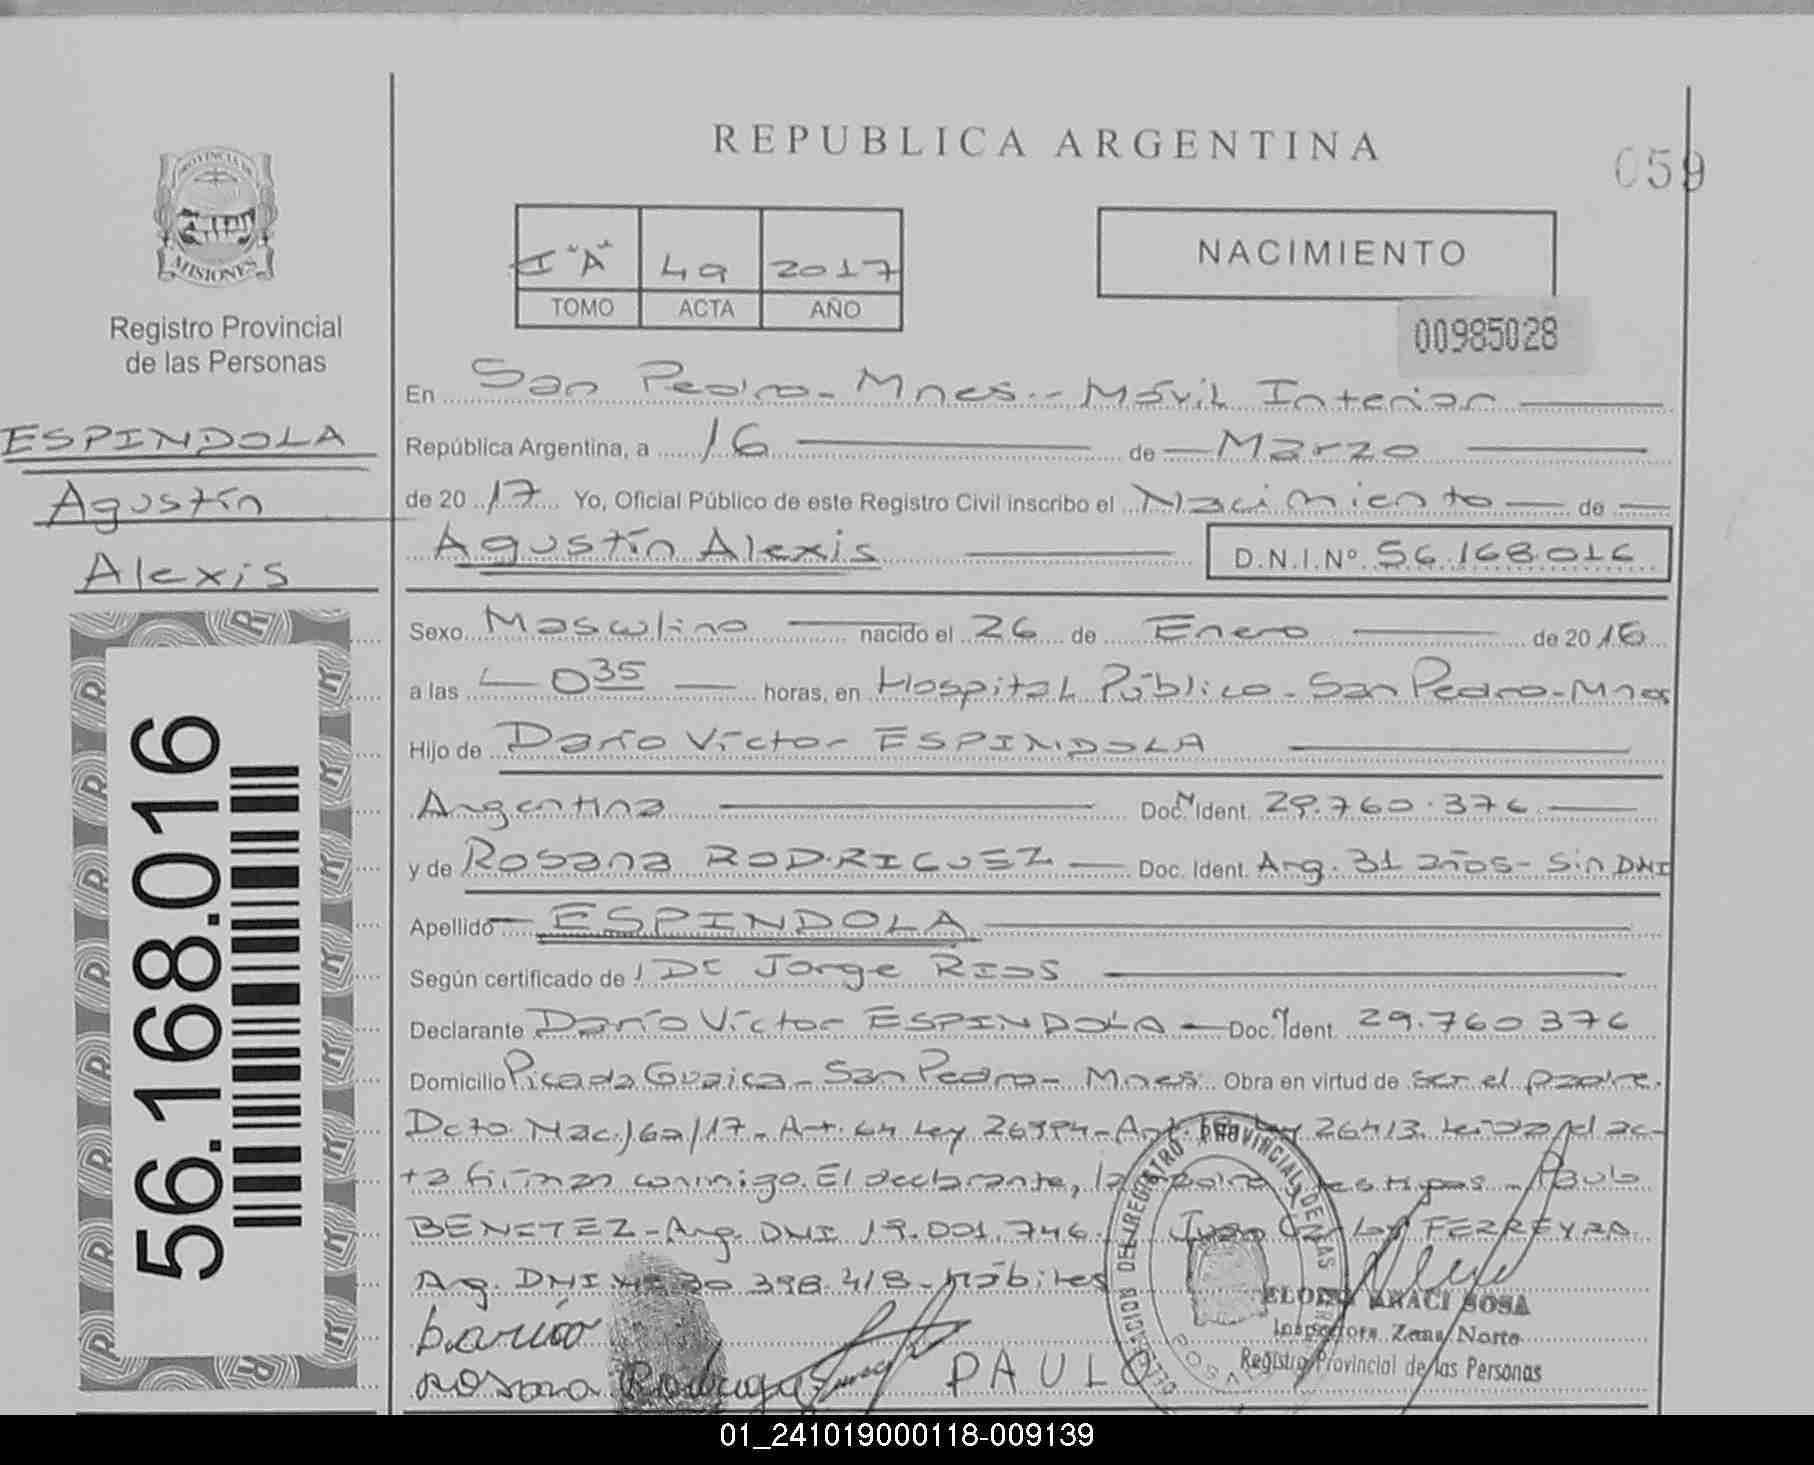 REPUBLICA ARGENTINA
059
PROVINCIA DE
MISIONES
Registro Provincial
de las Personas
I "A" 49 2017
TOMO ACTA AÑO
NACIMIENTO
00985028
ESPINDOLA
Agustín
Alexis
56.168.016
En San Pedro - Mnes.- Móvil Interior
República Argentina, a 16 de Marzo
de 2017 Yo, Oficial Público de este Registro Civil inscribo el Nacimiento de
Agustín Alexis D.N.I.Nº 56.168.016
Sexo Masculino nacido el 26 de Enero de 2016
a las 0 35 horas, en Hospital Público - San Pedro - Mnes
Hijo de Darío Víctor ESPINDOLA
Argentina Doc. N Ident. 29.760.376
y de Rosana RODRIGUEZ Doc. Ident. Arg. 31 años - Sin DNI
Apellido ESPINDOLA
Según certificado de Dr Jorge RIOS
Declarante Darío Víctor ESPINDOLA Doc. N Ident. 29.760376
Domicilio Picada Guaica - San Pedro - Mnes. Obra en virtud de ser el padre.
Dcto Nac. 160/17 - Art. 64 Ley 26994 - Art. Ley 26413. Leída el ac-
ta firman conmigo. El declarante, la testigos - Paulo
BENITEZ - Arg. DNI 19.001.746. Juan Carlos FERREYRA
Arg. DNI Nº 30 398.418 - Hábiles
Darío
Rosana Rodriguez PAULO
DELEGACION DEL REGISTRO PROVINCIAL DE LAS PERSONAS
ELOISA ARACI SOSA
Inspectora Zona Norte
Registro Provincial de las Personas
01_241019000118-009139